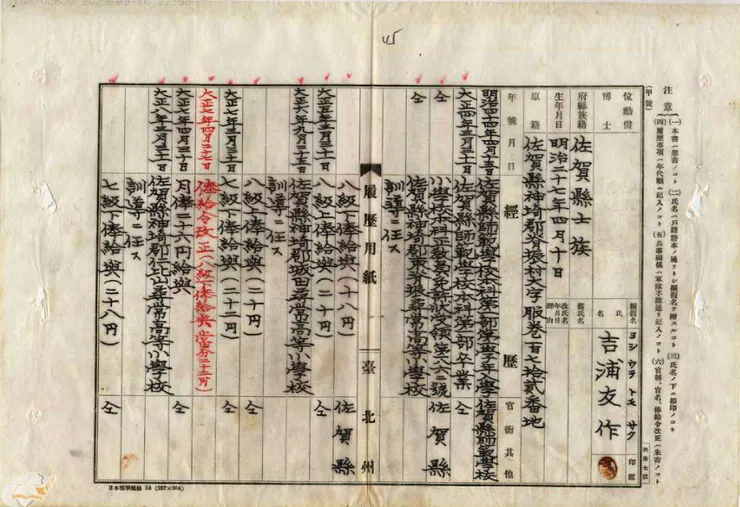 45
注意
(一)本書ハ楷書ノコト (二)氏名ハ戸籍謄本ノ通リトシ振假名ヲ附スルコト (三)氏名ノ下ニ捺印ノコト
(四)履歴事項ハ年代順ニ記入ノコト (五)兵事關係ハ軍隊手牒通リ記入ノコト (六)官制、官名、俸給令改正ハ朱書ノコト
(甲號)
位勳爵
博士
府縣族籍 佐賀縣士族
生年月日 明治二十七年四月十日
原籍 佐賀縣神埼郡脊振村大字服卷百七拾貳番地
振假名 ヨシウラ トモ サク
氏名 吉浦友作
印鑑
舊氏名
改氏名年月日
理由
年號月日 經歷 官衙其他
明治四十四年四月十五日 佐賀縣師範學校本科第一部第一學年入學 佐賀縣師範學校
大正四年三月二十日 佐賀縣師範學校本科第一部卒業 仝
仝 小學校本科正敎員免許狀受領 佐賀縣
仝 佐賀縣神埼郡東脊振尋常高等小學校
訓導ニ任ス
八級下俸給與(十八円) 佐賀縣
履歷用紙 臺北州
大正五年三月三十一日 八級上俸給與(二十円) 仝
大正六年九月三十五日 佐賀縣神埼郡城田尋常高等小學校
訓導ニ任ス
八級上俸給與 仝
大正七年三月三十一日 七級下俸給與(二十二円) 仝
大正七年四月二十七日 俸給令改正(八級下俸給與 當分二十五円)
大正七年四月三十日 月俸二十六円給與 仝
大正八年三月三十一日 佐賀縣神埼郡三山尋常高等小學校
訓導ニ任ス
七級下俸給與(二十八円) 仝
日本標準規格 B4 (257×364)